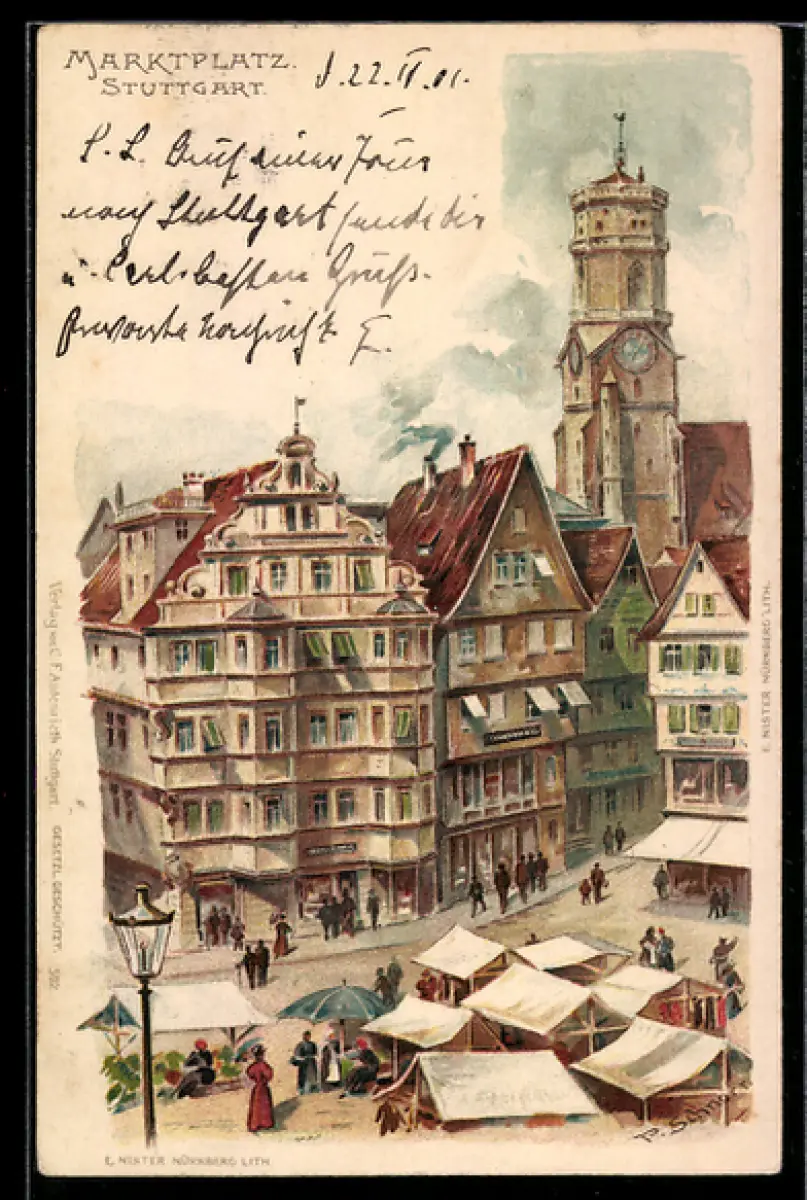 MARKTPLATZ.
STUTTGART.
d. 22. II. 01.
L. L. Auf einer Tour
nach Stuttgart sende dir
u. Carl besten Gruß.
Erwarte Nachricht. E.
Verlag von C. F. Autenrieth Stuttgart. GESETZL. GESCHÜTZT. 582
E. NISTER NÜRNBERG LITH.
E. NISTER NÜRNBERG LITH.